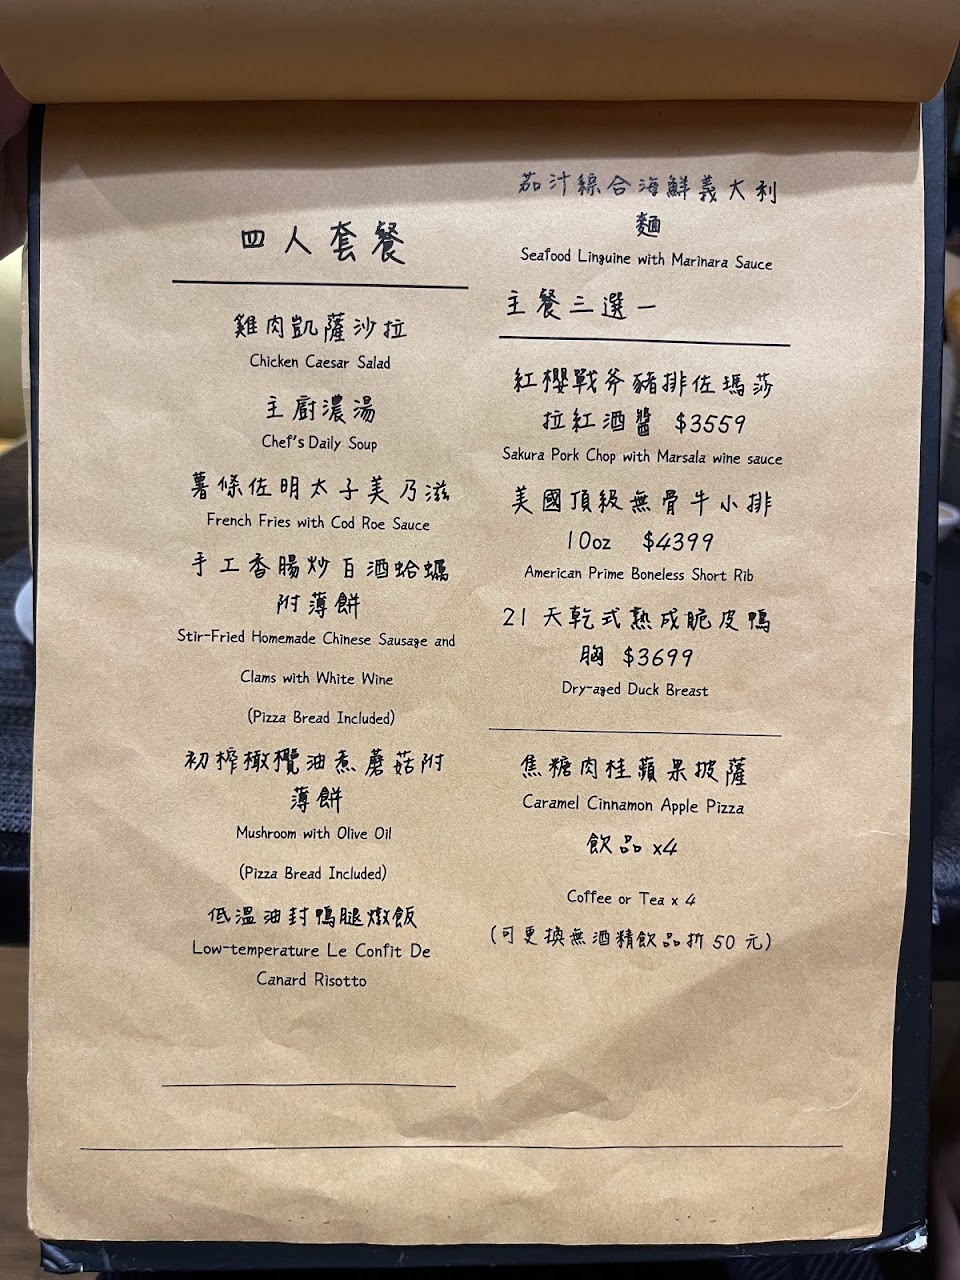 四人套餐
雞肉凱薩沙拉
Chicken Caesar Salad
主廚濃湯
Chef's Daily Soup
薯條佐明太子美乃滋
French Fries with Cod Roe Sauce
手工香腸炒白酒蛤蠣
附薄餅
Stir-Fried Homemade Chinese Sausage and
Clams with White Wine
(Pizza Bread Included)
初榨橄欖油煮蘑菇附
薄餅
Mushroom with Olive Oil
(Pizza Bread Included)
低溫油封鴨腿燉飯
Low-temperature Le Confit De
Canard Risotto
茄汁綜合海鮮義大利
麵
Seafood Linguine with Marinara Sauce
主餐三選一
紅櫻戰斧豬排佐瑪莎
拉紅酒醬 $3559
Sakura Pork Chop with Marsala wine sauce
美國頂級無骨牛小排
10oz $4399
American Prime Boneless Short Rib
21 天乾式熟成脆皮鴨
胸 $3699
Dry-aged Duck Breast
焦糖肉桂蘋果披薩
Caramel Cinnamon Apple Pizza
飲品 x4
Coffee or Tea x 4
(可更換無酒精飲品折 50 元)